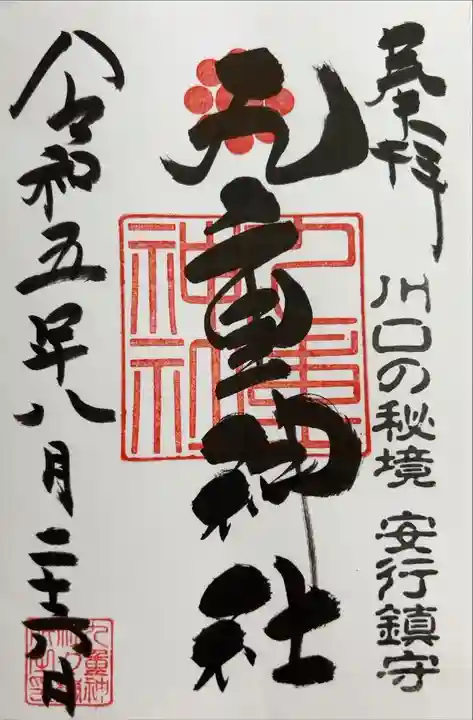 奉拝
川口の秘境 安行鎮守
九重神社
九重神社
令和五年八月二十六日